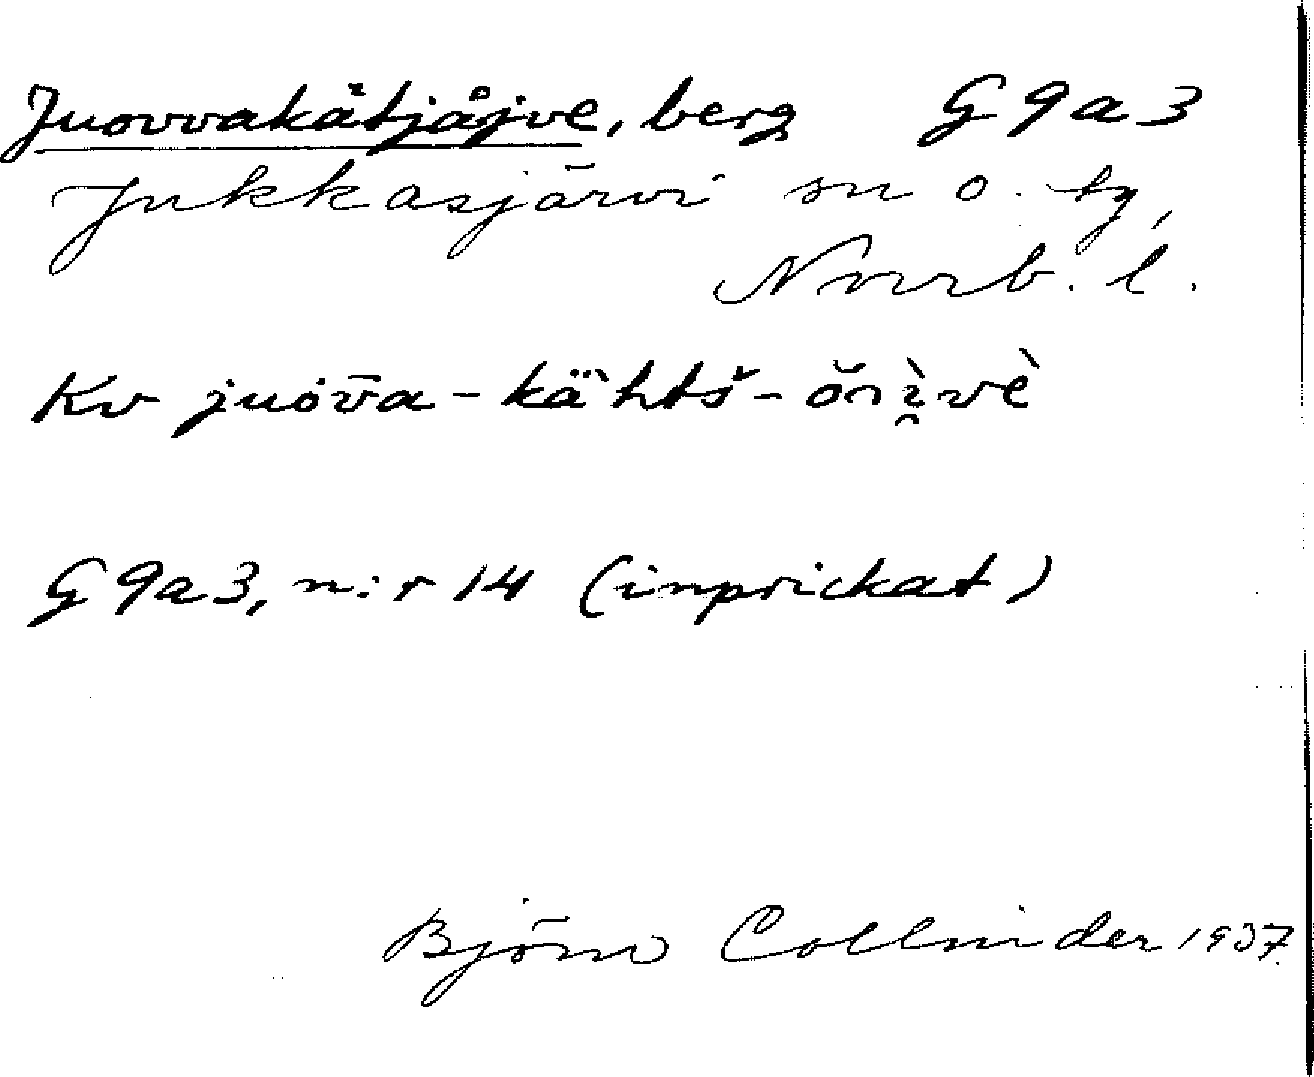 Juovvakåtjåjve, berg G9a3
Jukkasjärvi sn o. tg,
Norrb. l.
Kv juov̄a-kähtš-
G9a3, n:r 14 (inprickat)
Björn Collinder 1937.